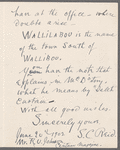 han at the office — when
double and —
WALLILABOU is the
name of the town South of
WALLIBOU.
You han the note that
explains — in Mr
what he means by
Curtain —
With all good wishes.
Sincerely yours
S. C. Reid.
June 20th 1902
Mr. R. U. Johnson